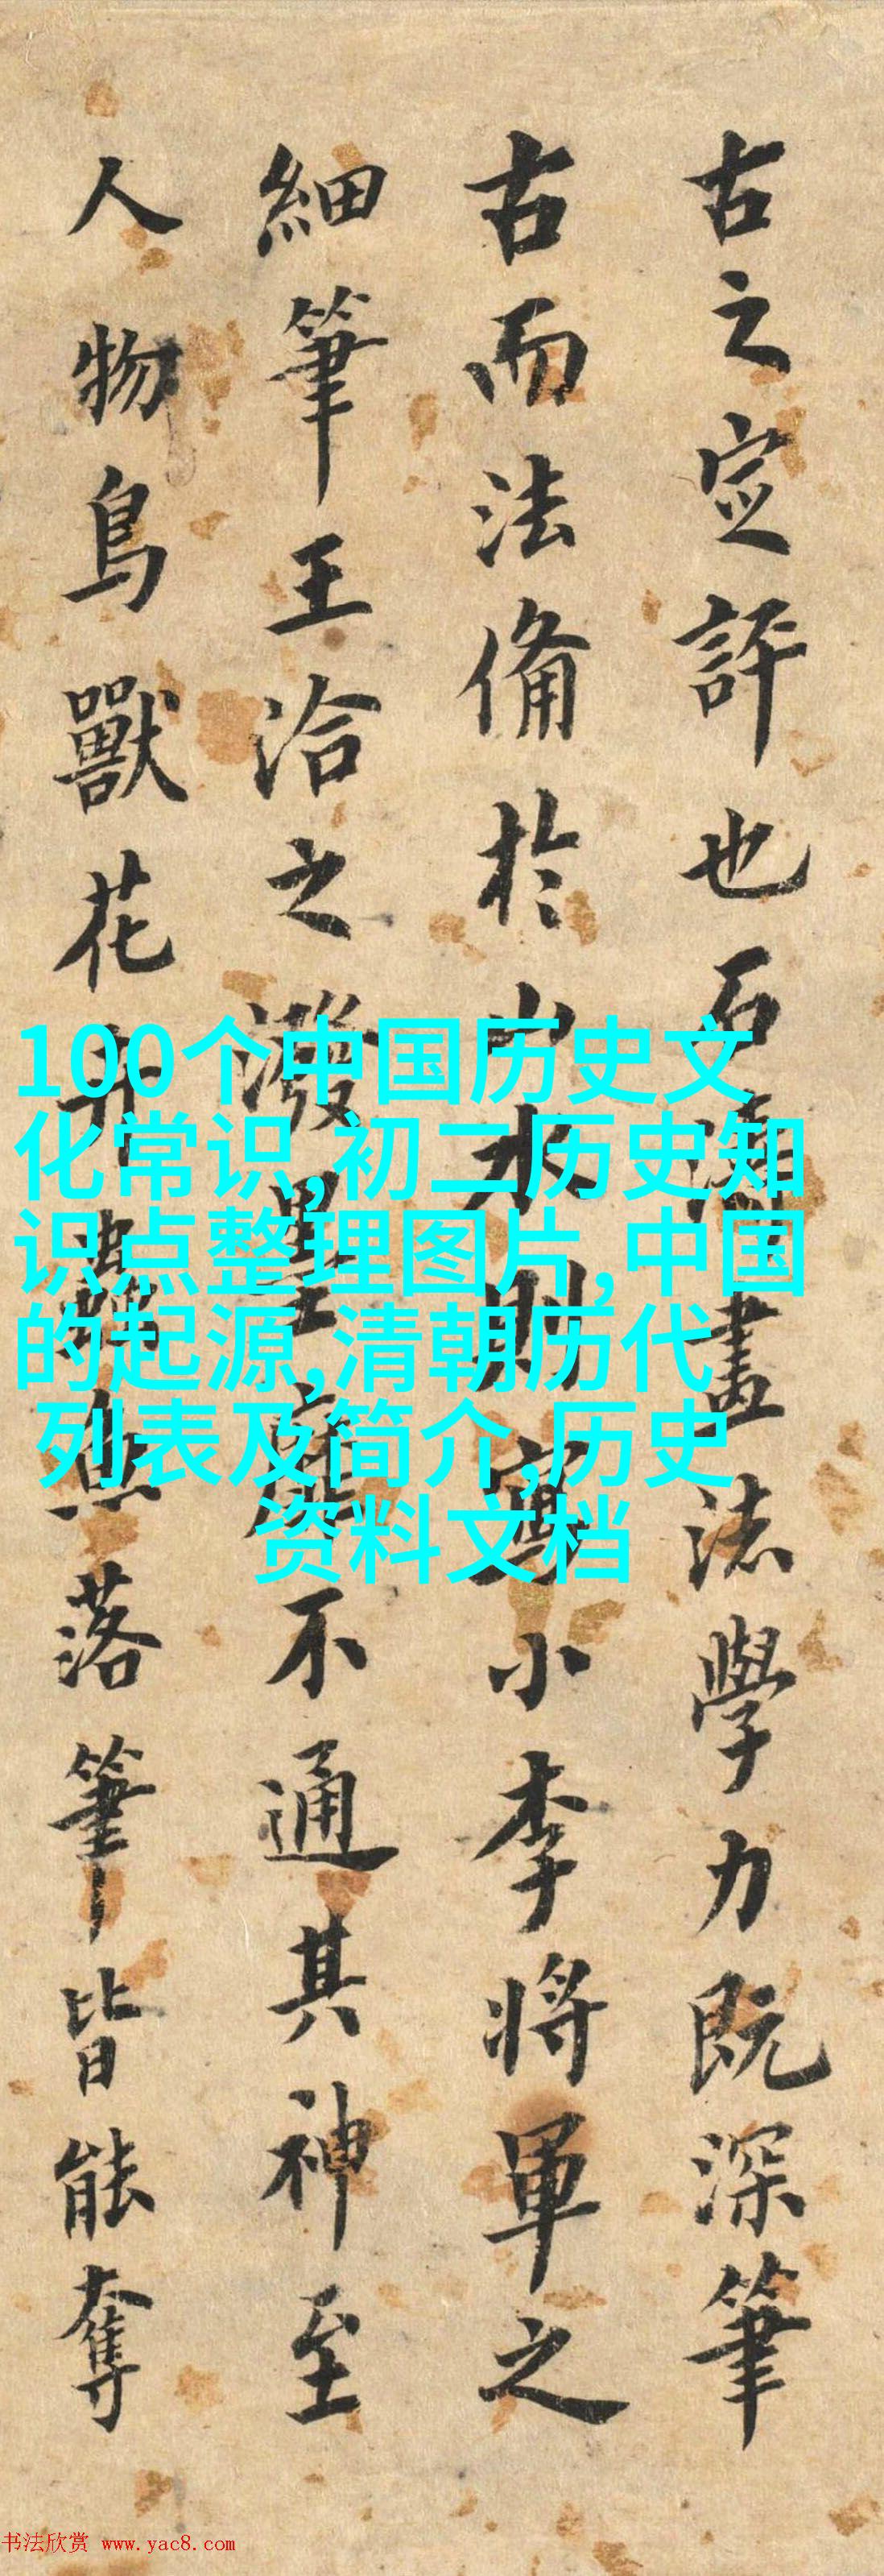 古之定評也石濤畫法學力既深筆
古而法備於山水則寫小李將軍之
細筆王洽之潑墨靡不通其神至
人物鳥獸花卉蟲魚落筆皆能奪
100个中国历史文
化常识,初二历史知
识点整理图片,中国
的起源,清朝历代
列表及简介,历史
资料文档
书法欣赏 www.yac8.com